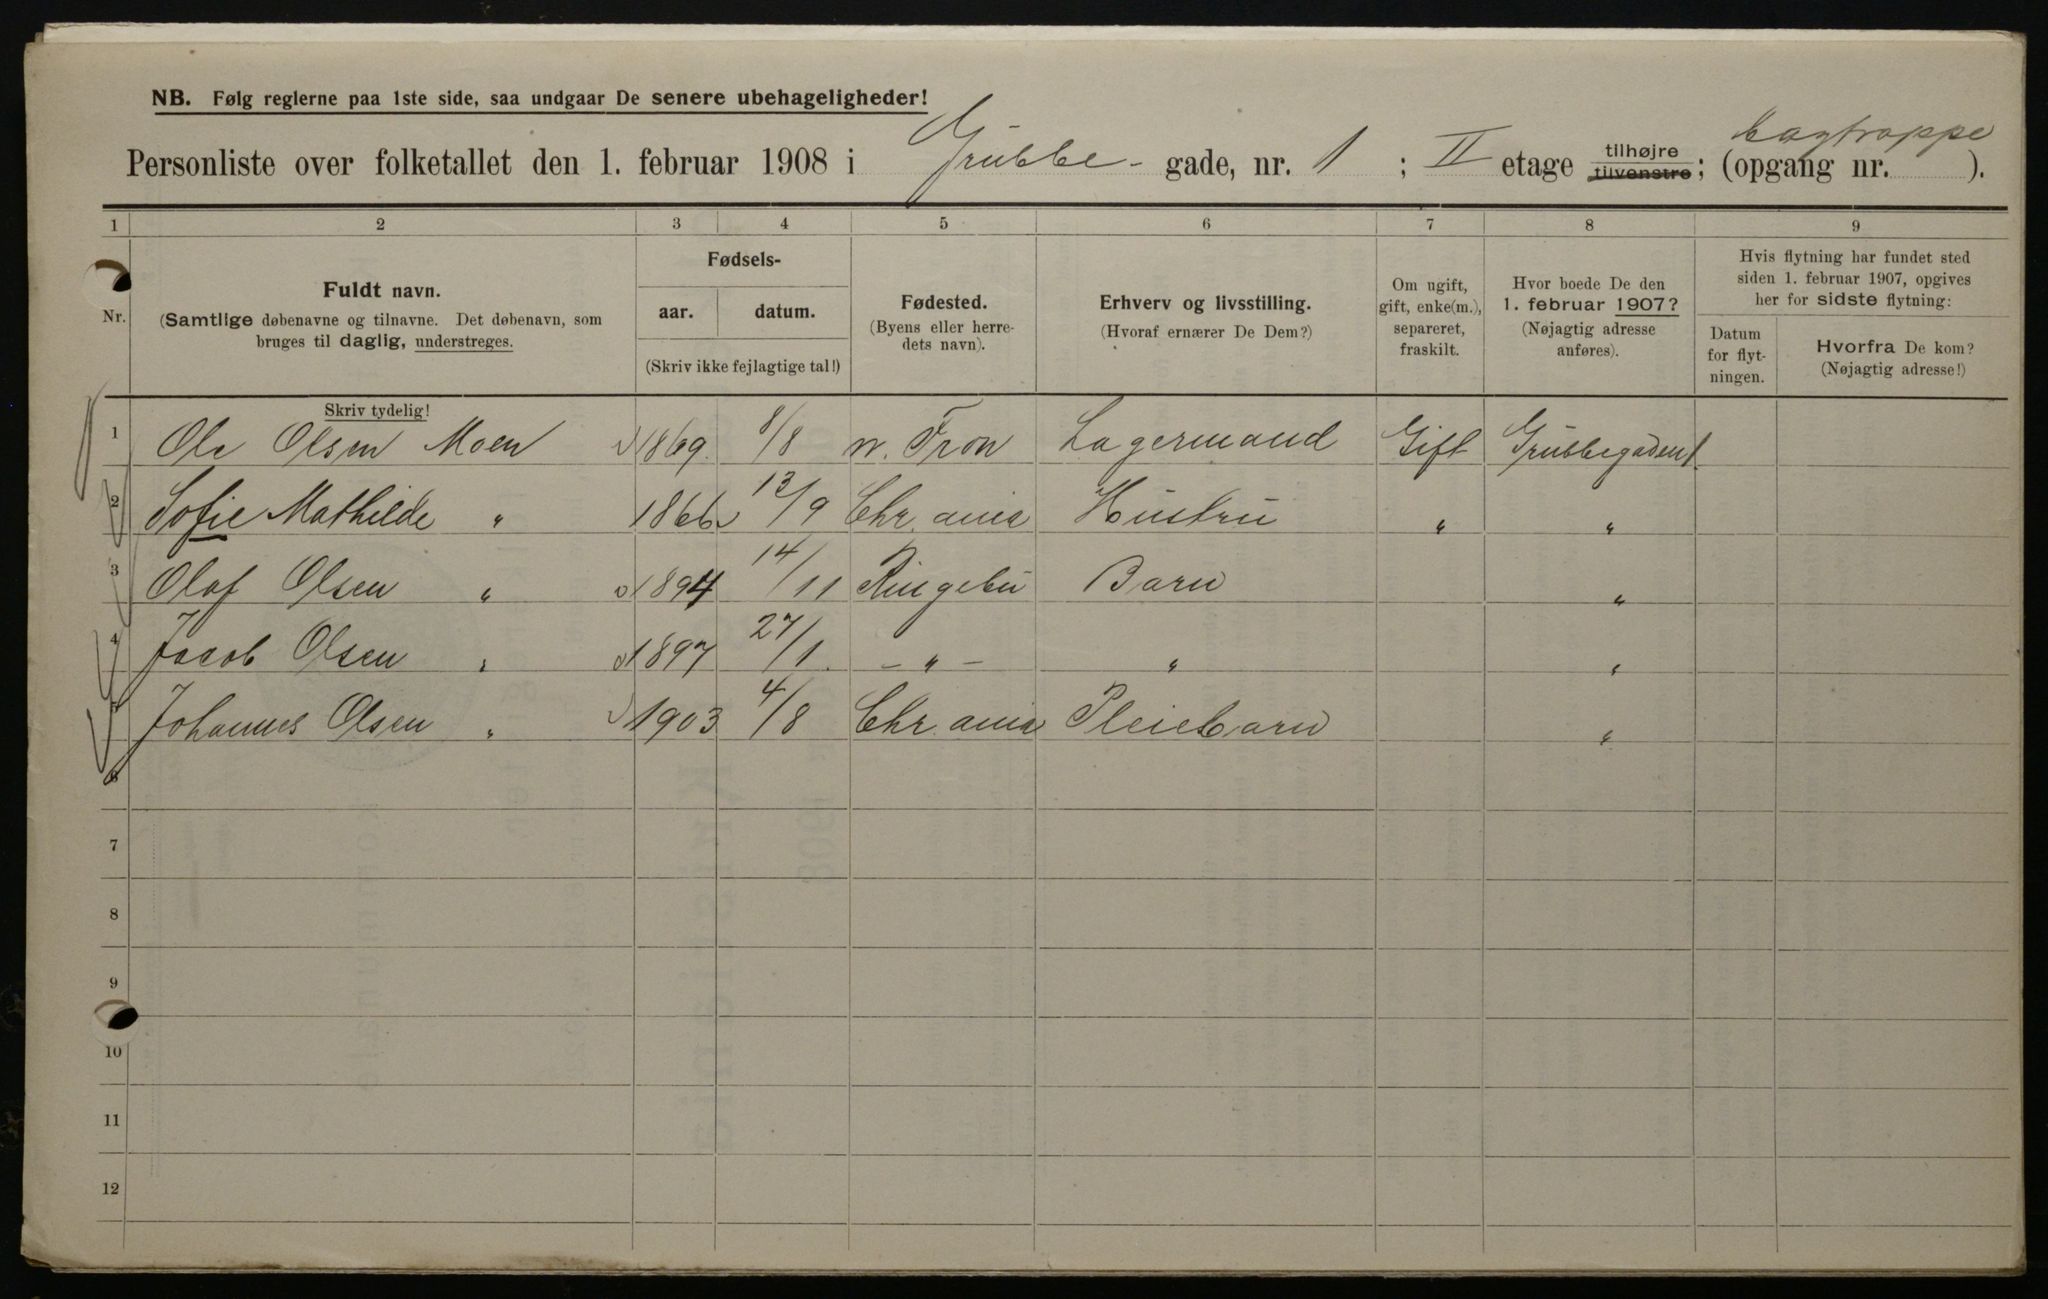 NB. Følg reglerne paa 1ste side, saa undgaar De senere ubehageligheder!
Personliste over folketallet den 1. februar 1908 i Grubbe- gade, nr. 1 ; II etage tilhøjre tilvenstre; (opgang nr. bagtrappe ).
1 2 3 4 5 6 7 8 9
Nr.
Fuldt navn.
(Samtlige døbenavne og tilnavne. Det døbenavn, som
bruges til daglig, understreges.
Skriv tydelig!
Fødsels-
aar. datum.
(Skriv ikke fejlagtige tal!)
Fødested.
(Byens eller herre-
dets navn).
Erhverv og livsstilling.
(Hvoraf ernærer De Dem?)
Om ugift,
gift, enke(m.),
separeret,
fraskilt.
Hvor boede De den
1. februar 1907?
(Nøjagtig adresse
anføres).
Hvis flytning har fundet sted
siden 1. februar 1907, opgives
her for sidste flytning:
Datum
for flyt-
ningen.
Hvorfra De kom?
(Nøjagtig adresse!)
1 Ole Olsen Moen 1869. 8/8 n. Fron Lagermand Gift Grubbegaden 1
2 Sofie Mathilde " 1866 13/9 Chr.ania Hustru " "
3 Olaf Olsen " 1894 14/11 Ringebu Barn "
4 Jacob Olsen " 1897 27/1. – " – " "
5 Johannes Olsen " 1903 4/8 Chr.ania Pleiebarn "
6
7
8
9
10
11
12